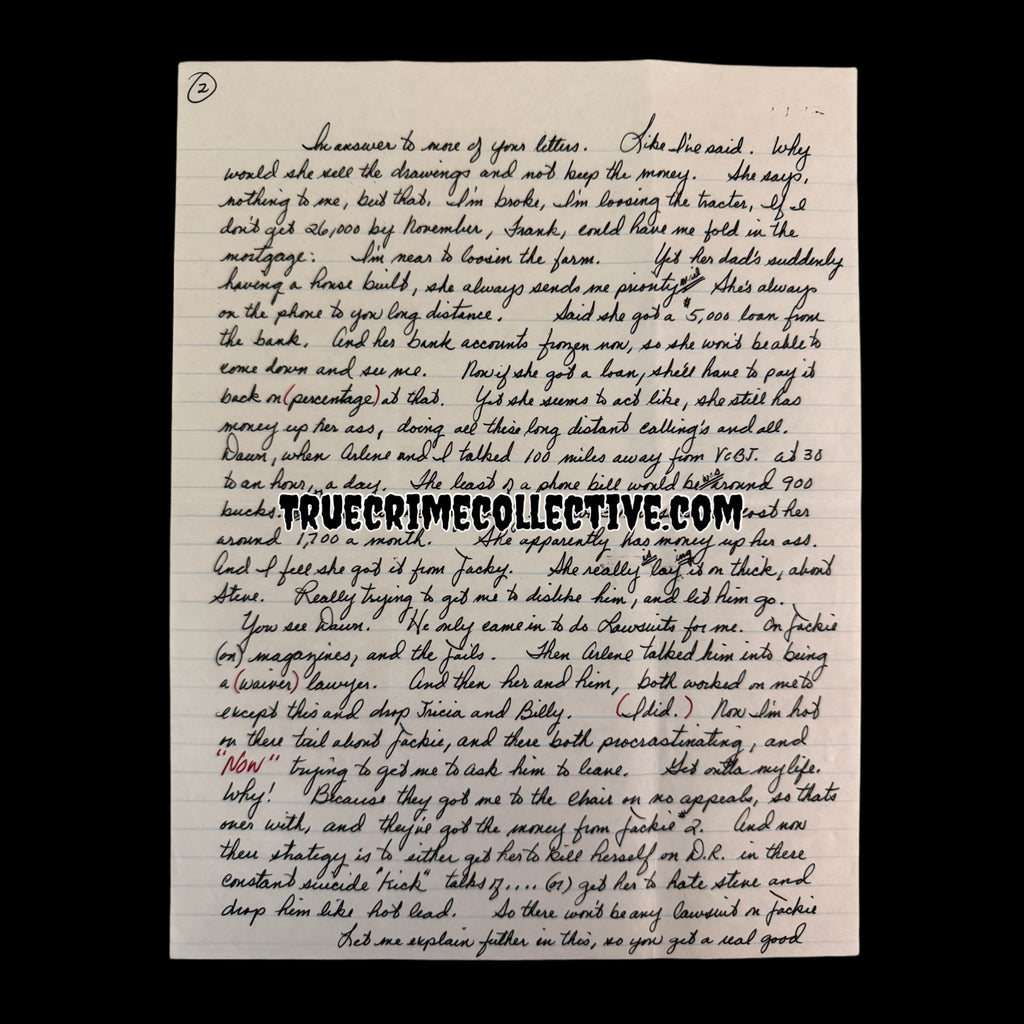 2
In answer to more of your letters. Like I've said. Why
would she sell the drawings and not keep the money. She says,
nothing to me, but that. I'm broke, I'm loosing the tracter, If I
don't get 26,000 by November, Frank, could have me fold in the
mortgage: I'm near to loosin the farm. Yet her dad's suddenly
having a house built, she always sends me priority mail She's always
on the phone to you long distance. Said she got a $5,000 loan from
the bank. And her bank accounts frozen now, so she won't be able to
come down and see me. Now if she got a loan, she'll have to pay it
back on (percentage) at that. Yet she seems to act like, she still has
money up her ass, doing all these long distant calling's and all.
Dawn, when Arlene and I talked 100 miles away from VCBJ. at 30
to an hour, a day. The least of a phone bill would be around 900
bucks. cost her
TRUECRIMECOLLECTIVE.COM
around 1,700 a month. She apparently has money up her ass.
And I feel she got it from Jacky. She really lay it on thick, about
Steve. Really trying to get me to dislike him, and let him go.
You see Dawn. He only came in to do Lawsuits for me. On Jackie
(on) magazines, and the Jails. Then Arlene talked him into being
a (waiver) lawyer. And then her and him, both worked on me to
except this and drop Tricia and Billy. (I did.) Now I'm hot
on there tail about Jackie, and there both procrastinating, and
"NOW" trying to get me to ask him to leave. Get outta my life.
Why! Because they got me to the chair on no appeals, so thats
over with, and they've got the money from Jackie #2. And now
there strategy is to either get her to kill herself on D.R. in there
constant suicide "kick" talks of.... (or) get her to hate steve and
drop him like hot lead. So there won't be any lawsuit on Jackie
Let me explain futher in this, so you get a real good